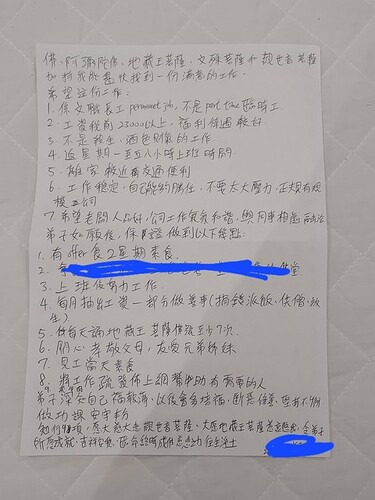 佛,阿彌陀佛,地藏王菩薩,文殊菩薩和觀世音菩薩
加持我能盡快找到一份滿意的工作。
希望這份工作:
1. 係文職長工 permanent job, 不是 part time 臨時工
2. 工資稅前 23000以上,福利待遇較好
3. 不是殺生、酒色財氣的工作.
4. 逢星期一至五八小時上班時間
5. 離家較近兩交通便利
6. 工作穩定,自己能夠勝任,不要太大壓力,正規有規
模公司
7. 希望老闆人品好,公司工作氣氛和諧,與同事相處
弟子如願後,保證做到以下幾點:
1. 有 offer 食 2星期素食.
2.
3. 上班後努力工作.
4. 每月抽出工資一部分做善事(捐錢派飯、供僧、放
生)
5. 每天誦地藏王菩薩 至少7次.
6. 開心孝敬父母,友愛兄弟姊妹
7. 見工當天素食
8. 將工作 發佈上網幫助有需要的人
弟子深知自己福報薄,以後會多培福,斷惡修善,
做功課 安守本份
大慈大悲觀世音菩薩、大願地藏王菩薩 弟子
所願成就 吉祥